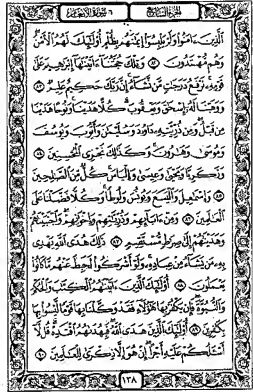 الجزء السابع ٦ سورة الأنعام
ٱلَّذِينَ ءَامَنُوا۟ وَلَمْ يَلْبِسُوٓا۟ إِيمَـٰنَهُم بِظُلْمٍ أُو۟لَـٰٓئِكَ لَهُمُ ٱلْأَمْنُ
وَهُم مُّهْتَدُونَ ٨٢ وَتِلْكَ حُجَّتُنَآ ءَاتَيْنَـٰهَآ إِبْرَٰهِيمَ عَلَىٰ
قَوْمِهِۦ نَرْفَعُ دَرَجَـٰتٍ مَّن نَّشَآءُ إِنَّ رَبَّكَ حَكِيمٌ عَلِيمٌ ٨٣
وَوَهَبْنَا لَهُۥٓ إِسْحَـٰقَ وَيَعْقُوبَ كُلًّا هَدَيْنَا وَنُوحًا هَدَيْنَا
مِن قَبْلُ وَمِن ذُرِّيَّتِهِۦ دَاوُۥدَ وَسُلَيْمَـٰنَ وَأَيُّوبَ وَيُوسُفَ
وَمُوسَىٰ وَهَـٰرُونَ وَكَذَٰلِكَ نَجْزِى ٱلْمُحْسِنِينَ ٨٤
وَزَكَرِيَّا وَيَحْيَىٰ وَعِيسَىٰ وَإِلْيَاسَ كُلٌّ مِّنَ ٱلصَّـٰلِحِينَ
٨٥ وَإِسْمَـٰعِيلَ وَٱلْيَسَعَ وَيُونُسَ وَلُوطًا وَكُلًّا فَضَّلْنَا عَلَى
ٱلْعَـٰلَمِينَ ٨٦ وَمِنْ ءَابَآئِهِمْ وَذُرِّيَّـٰتِهِمْ وَإِخْوَٰنِهِمْ وَٱجْتَبَيْنَـٰهُمْ
وَهَدَيْنَـٰهُمْ إِلَىٰ صِرَٰطٍ مُّسْتَقِيمٍ ٨٧ ذَٰلِكَ هُدَى ٱللَّهِ يَهْدِى
بِهِۦ مَن يَشَآءُ مِنْ عِبَادِهِۦ وَلَوْ أَشْرَكُوا۟ لَحَبِطَ عَنْهُم مَّا كَانُوا۟
يَعْمَلُونَ ٨٨ أُو۟لَـٰٓئِكَ ٱلَّذِينَ ءَاتَيْنَـٰهُمُ ٱلْكِتَـٰبَ وَٱلْحُكْمَ
وَٱلنُّبُوَّةَ فَإِن يَكْفُرْ بِهَا هَـٰٓؤُلَآءِ فَقَدْ وَكَّلْنَا بِهَا قَوْمًا لَّيْسُوا۟ بِهَا
بِكَـٰفِرِينَ ٨٩ أُو۟لَـٰٓئِكَ ٱلَّذِينَ هَدَى ٱللَّهُ فَبِهُدَىٰهُمُ ٱقْتَدِهْ قُل لَّآ
أَسْـَٔلُكُمْ عَلَيْهِ أَجْرًا إِنْ هُوَ إِلَّا ذِكْرَىٰ لِلْعَـٰلَمِينَ ٩٠
١٣٨